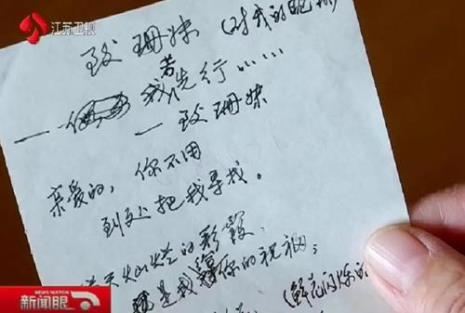 江苏卫视
致珊妹 (对我的昵称
若
一 我先行……
一致珊妹
亲爱的，你不用
到处把我寻找。
满天灿烂的彩霞，
就是我給你的祝福；
(鲜花闪烁的
NEWS WATCH
新闻眼